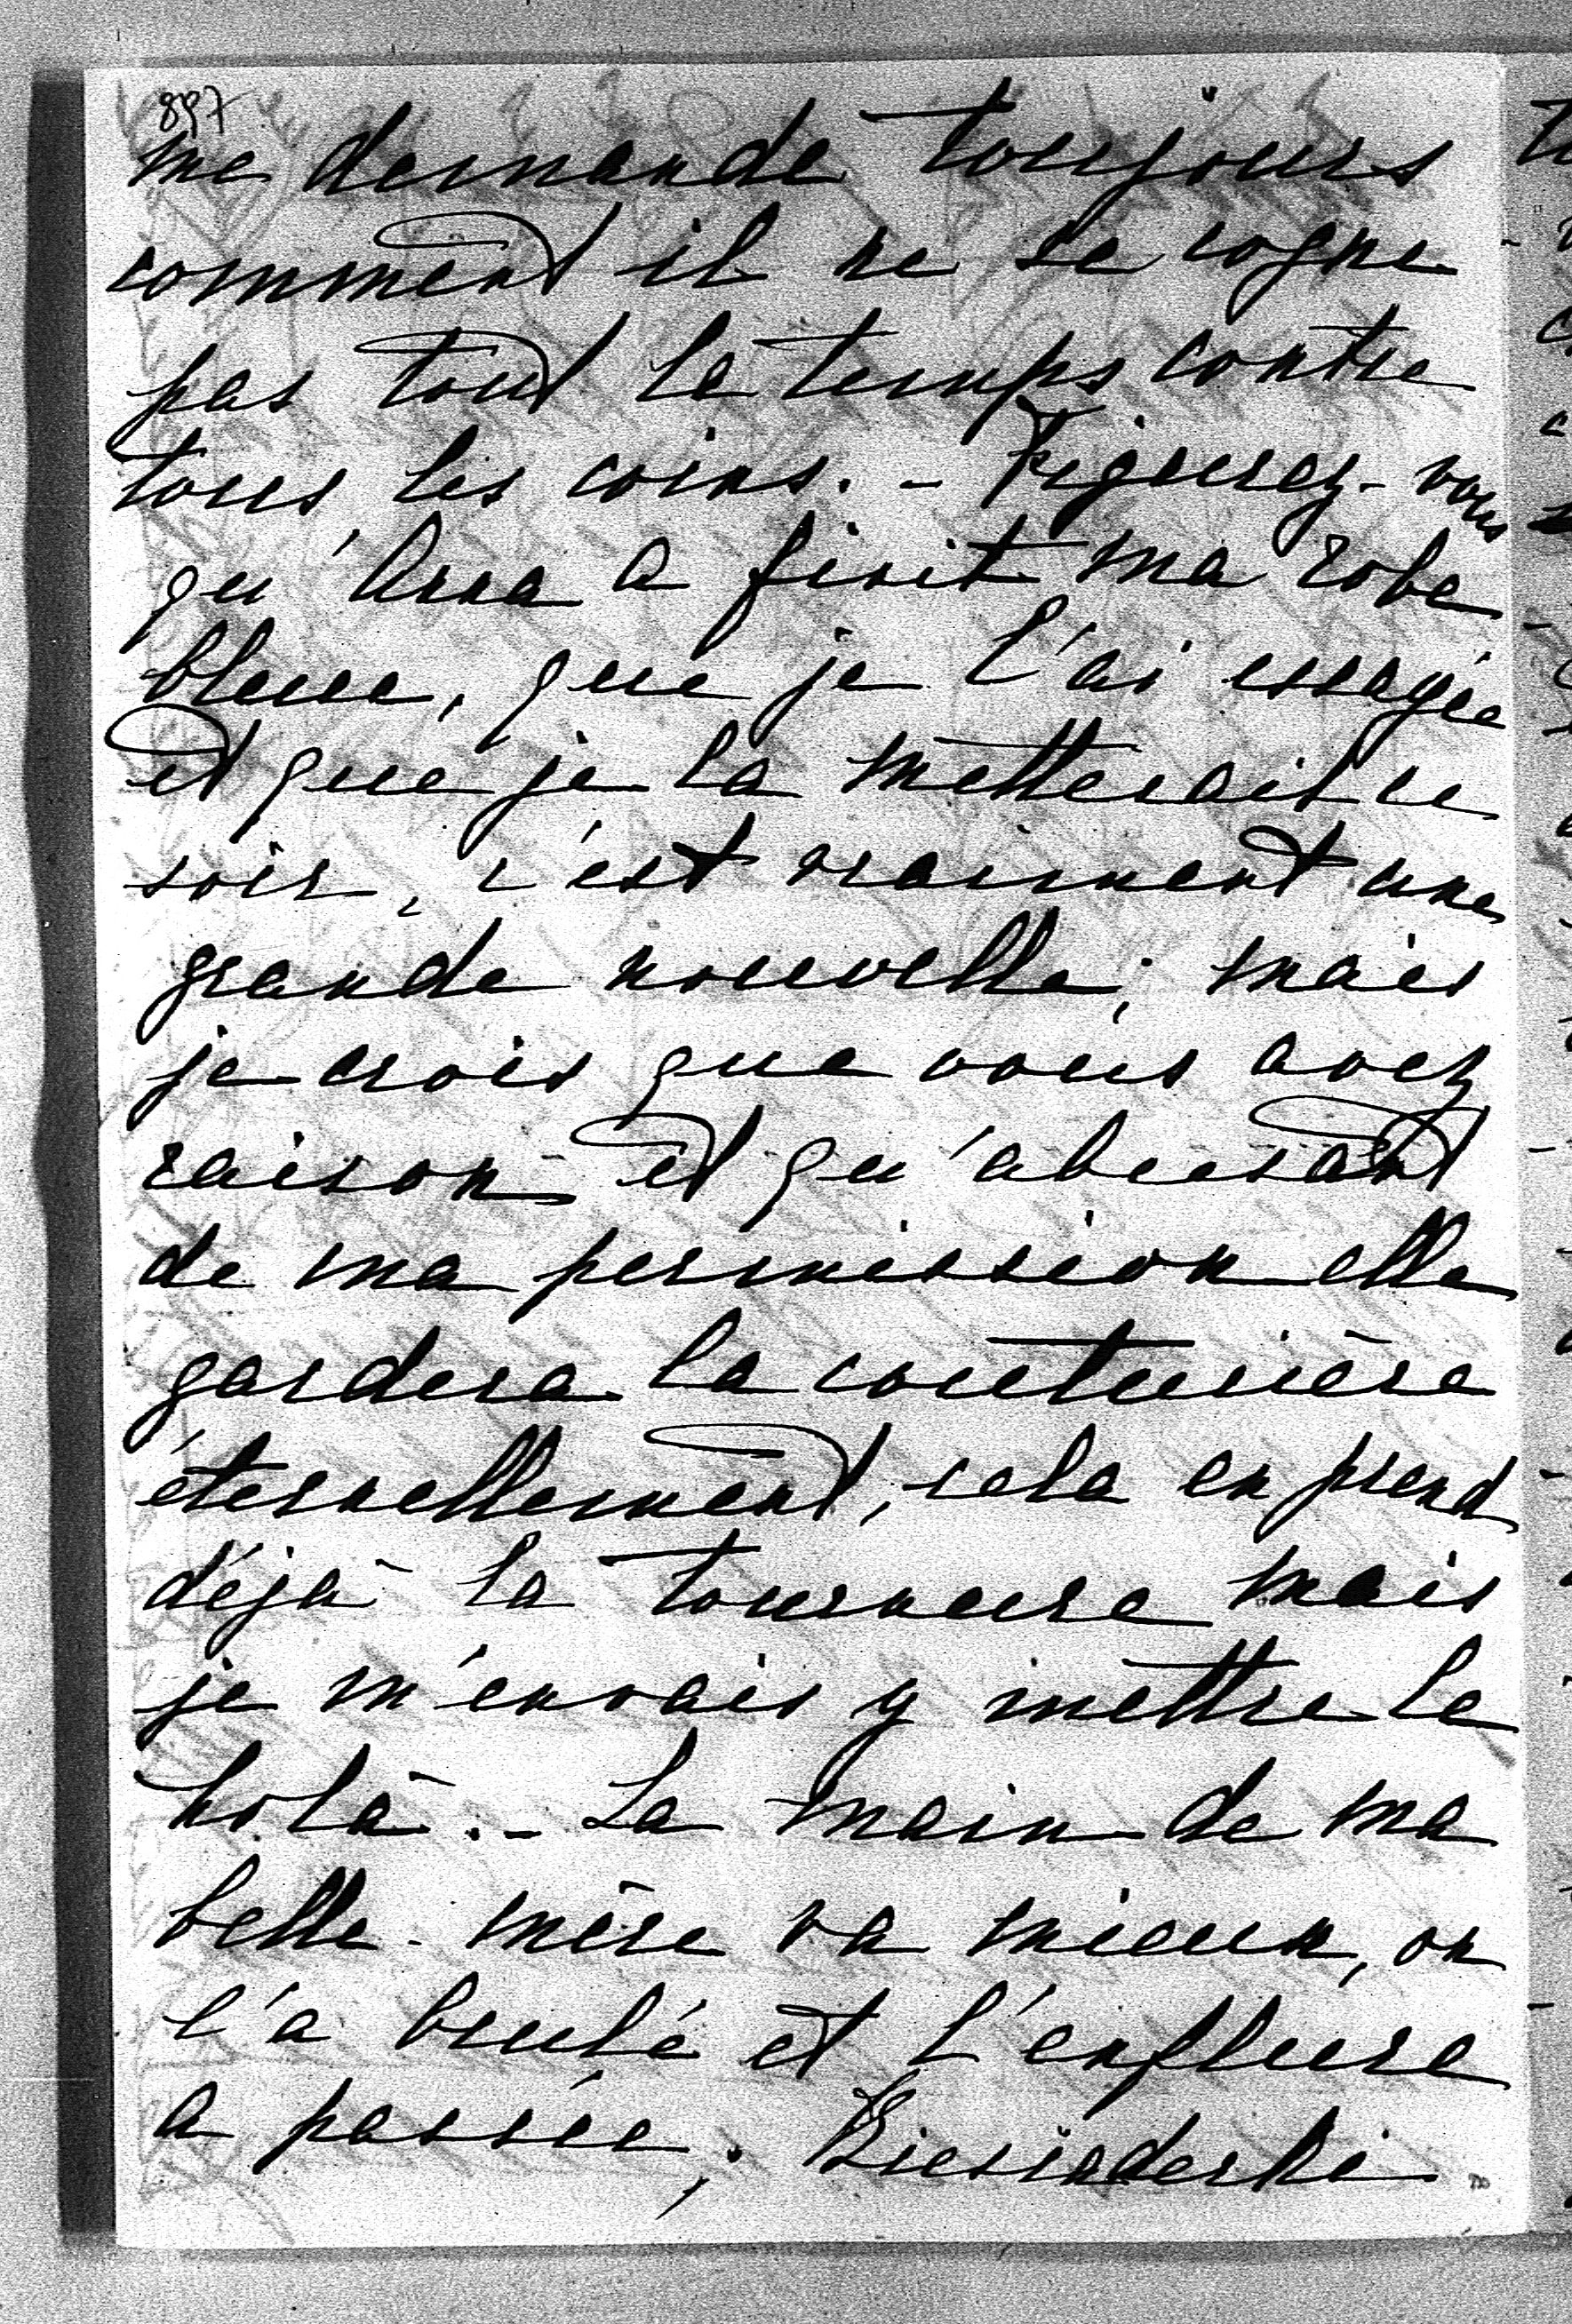 897
me demande toujours
comment il ne se cogne
pas tout le temps contre
tous les coins. - Figurez-vous
qu'Anna a finit ma robe
bleue, que je l'ai essayée
et que je la metterait ce
soir, c'est vraiment une
grande nouvelle; mais
je crois que vous avez
raison et qu'abusant
de ma permission elle
gardera la couturière
éternellement, cela en prend
déjà la tournure mais
je m'envais y mettre le
holà. - La main de ma
belle-mère va mieux, on
l'a brulé et l'enflure
a passée;